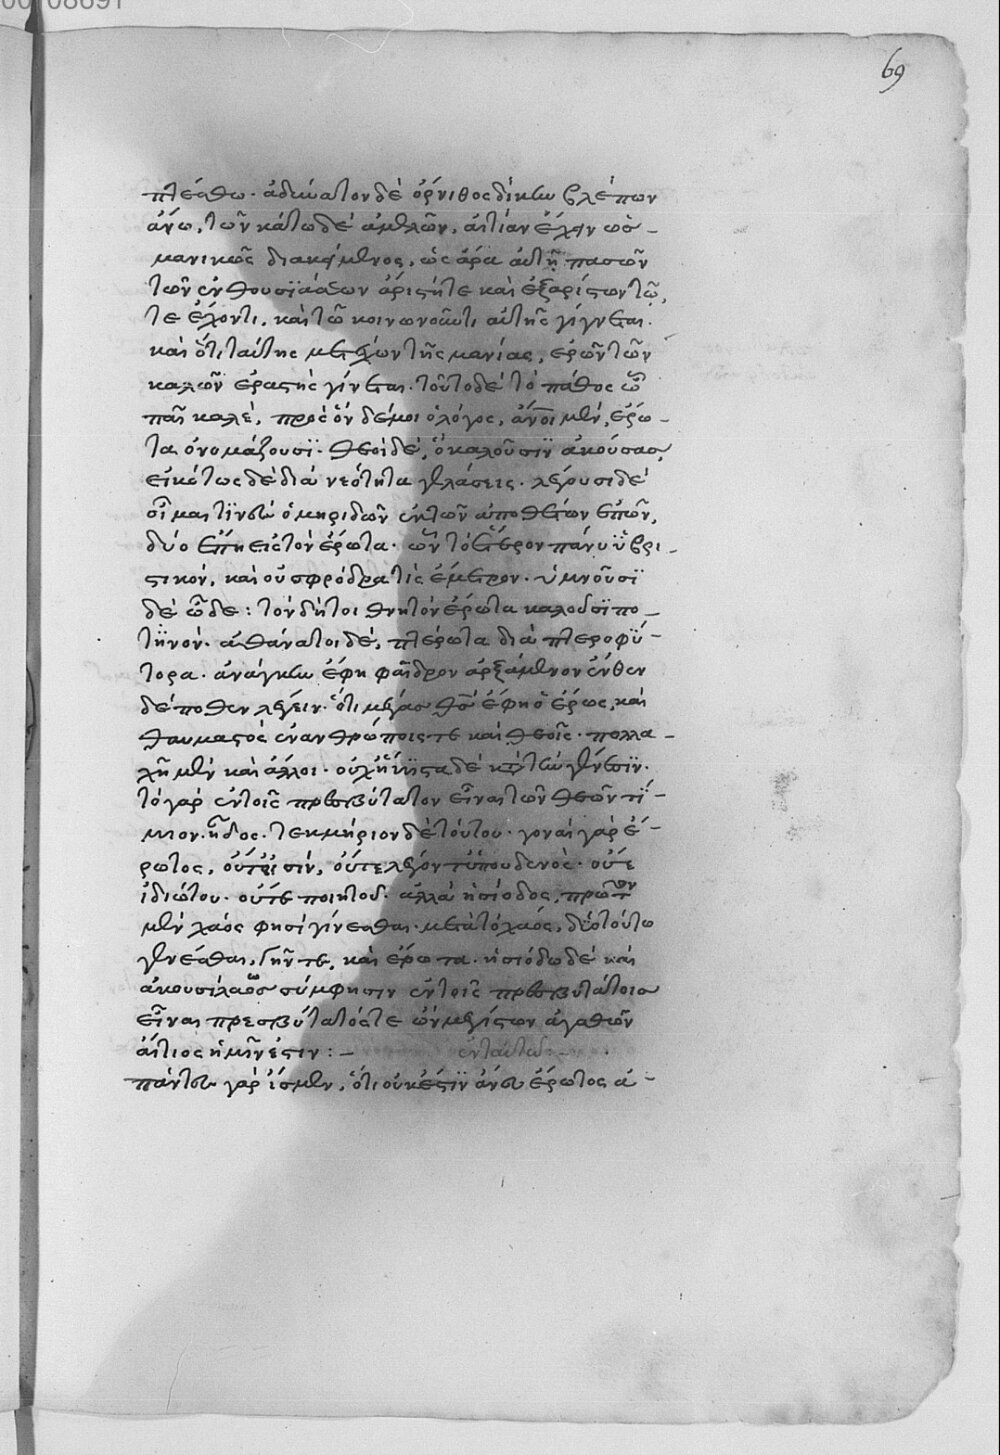 69
πτέσθαι. ἀδυνατον δὲ ὄρνιθος δίκην βλέπων
ἄνω, τῶν κάτω δὲ ἀμελῶν, αἰτίαν ἔχει ὡς
μανικῶς διακείμενος, ὡς ἄρα αὐτη πασῶν
τῶν ἐνθουσιάσεων ἀρίστη τε καὶ ἐξ ἀρίστων τῷ
τε ἔχοντι, καὶ τῷ κοινωνοῦντι αὐτῆς γίγνεται.
καὶ ὅτι ταύτης μετέχων τῆς μανίας, ἐρῶν τῶν
καλῶν ἐραστὴς γίνεται. τοῦτο δὲ τὸ πάθος ὦ
παῖ καλὲ, πρὸς ὅν δέ μοι ὁ λόγος, ἄνοι μὲν, ἔρω-
τα ὀνομάζουσι. θεοὶ δὲ, ὃ καλοῦσιν ἀκούσας
εἰκότως δὲ διὰ νεότητα γελάσεις. λέγουσι δὲ
οἶμαι τινὲς ὁμηριδῶν ἐκ τῶν ἀποθέτων ἐπῶν,
δύο ἔπη εἰς τὸν ἔρωτα. ὧν τὸ ἕτερον πάνυ ὑβρι-
στικόν, καὶ οὐ σφρόδρα τὶς ἔμετρον. ὑμνοῦσι
δὲ ὧδε: τὸν δή τοι θνητὸν ἔρωτα καλοῦσι πο-
τηνόν. ἀθάνατοι δὲ, πτέρωτα διὰ πτεροφύ-
τορα. ἀνάγκην ἔφη φαῖδρον ἀρξάμενον ἔνθεν
δέ ποθεν λέγειν. ὅτι μέγας θς ἔφη ὁ ἔρως, καὶ
θαυμαστὸς ἐν ἀνθρώποις τε καὶ θεοῖς. πολλα-
χῇ μὲν καὶ ἄλλοι. οὐχ ἥκιστα δὲ κατὰ τὴν γένεσιν.
τὸ γὰρ ἐν τοῖς πρεσβύτατον εἶναι τῶν θεῶν τί-
μιον. ἦ δος. τεκμήριον δὲ τούτου. γοναὶ γὰρ ἔ-
ρωτος, οὔτ' εἰσίν, οὔτε λέγονται ὑπ' οὐδενὸς. οὔτε
ἰδιώτου. οὔτε ποιητοῦ. ἀλλὰ ἡσίοδος, πρῶτον
μὲν χάος φησὶ γίνεσθαι. μετὰ τὸ χαός, δύο τούτω
γενέσθαι, γῆν τε, καὶ ἔρωτα. ἡσιόδω δὲ καὶ
ἀκουσίλαος σύμφησιν ἐν τοῖς πρεσβυτάτοις
εἶναι πρεσβύτατός τε ὢν μεγίστων ἀγαθῶν
αἴτιος ἡμῖν ἐστιν: - ἐνταυτῶ: -
πάντες γὰρ ἴσμεν, ὅτι οὐκ ἔστιν ἄνευ ἔρωτος ἀ-